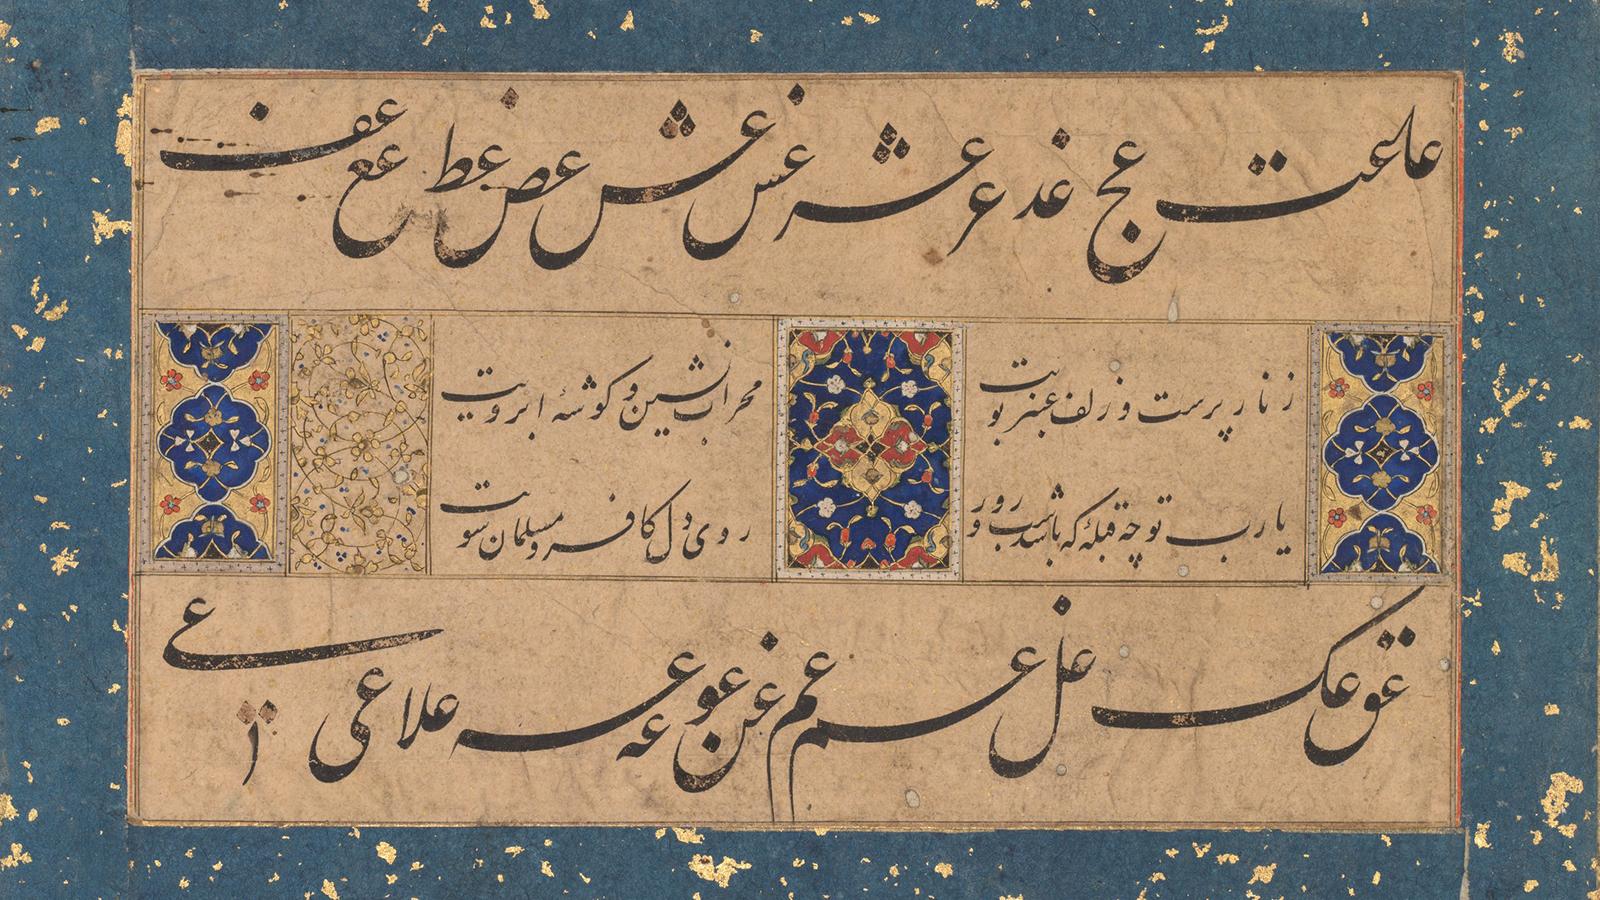 عا عت عج غد عر عشر غس عش عص غط عع عف
زنار پرست و زلف عنبر بویت
محراب نشین و گوشهٔ ابرویت
یا رب تو چه قبلهٔ که باشد شب و روز
روی دل کافر و مسلمان سویت
عق عک عل عسر عم غن عو عه عه علا عی عے